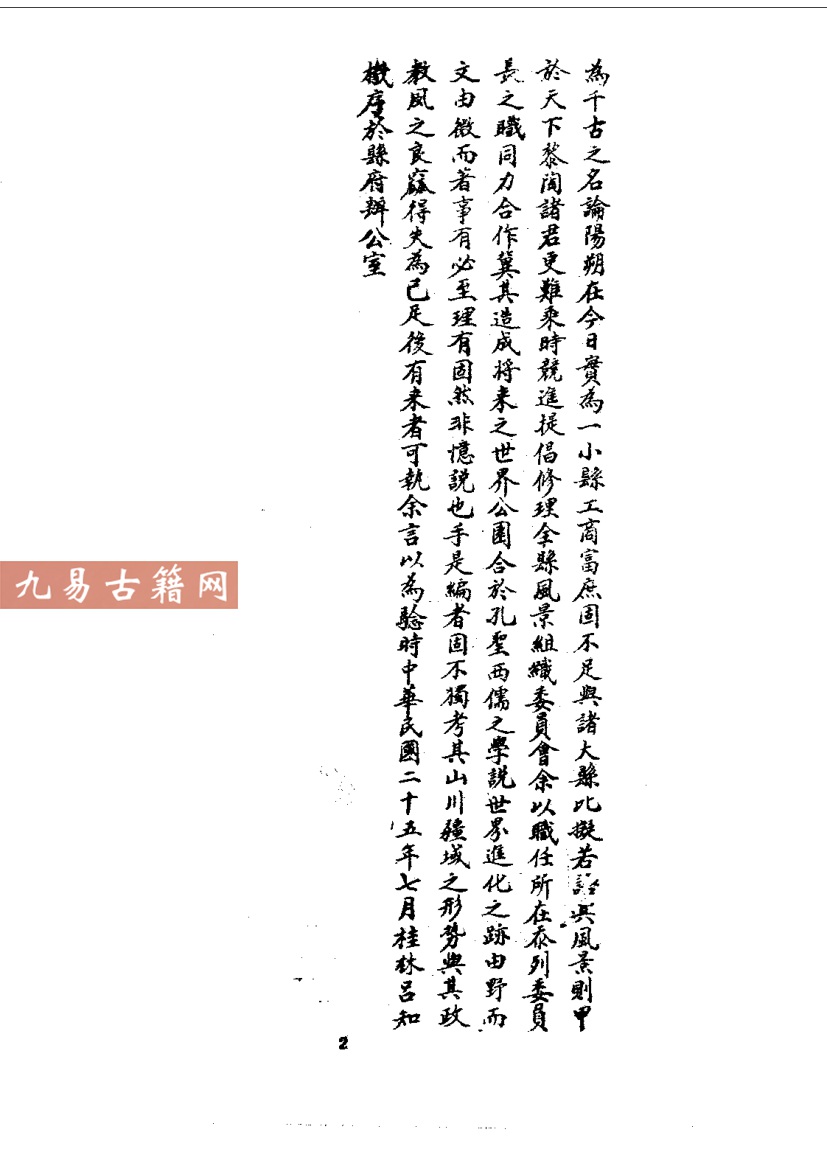 為千古之名論陽朔在今日實為一小縣工商富庶固不足與諸大縣比擬若論其風景則甲
於天下黎閣諸君更難乘時競進提倡修理全縣風景組織委員會余以職任所在忝列委員
長之職同力合作冀其造成将来之世界公園合於孔聖西儒之學說世界進化之跡由野而
文由微而著事有必至理有固然非憶說也手是編者固不獨考其山川疆域之形勢與其政
教風之良窳得失為已足後有来者可執余言以為驗時中華民國二十五年七月桂林呂知
檄序於縣府辦公室
九易古籍网
2